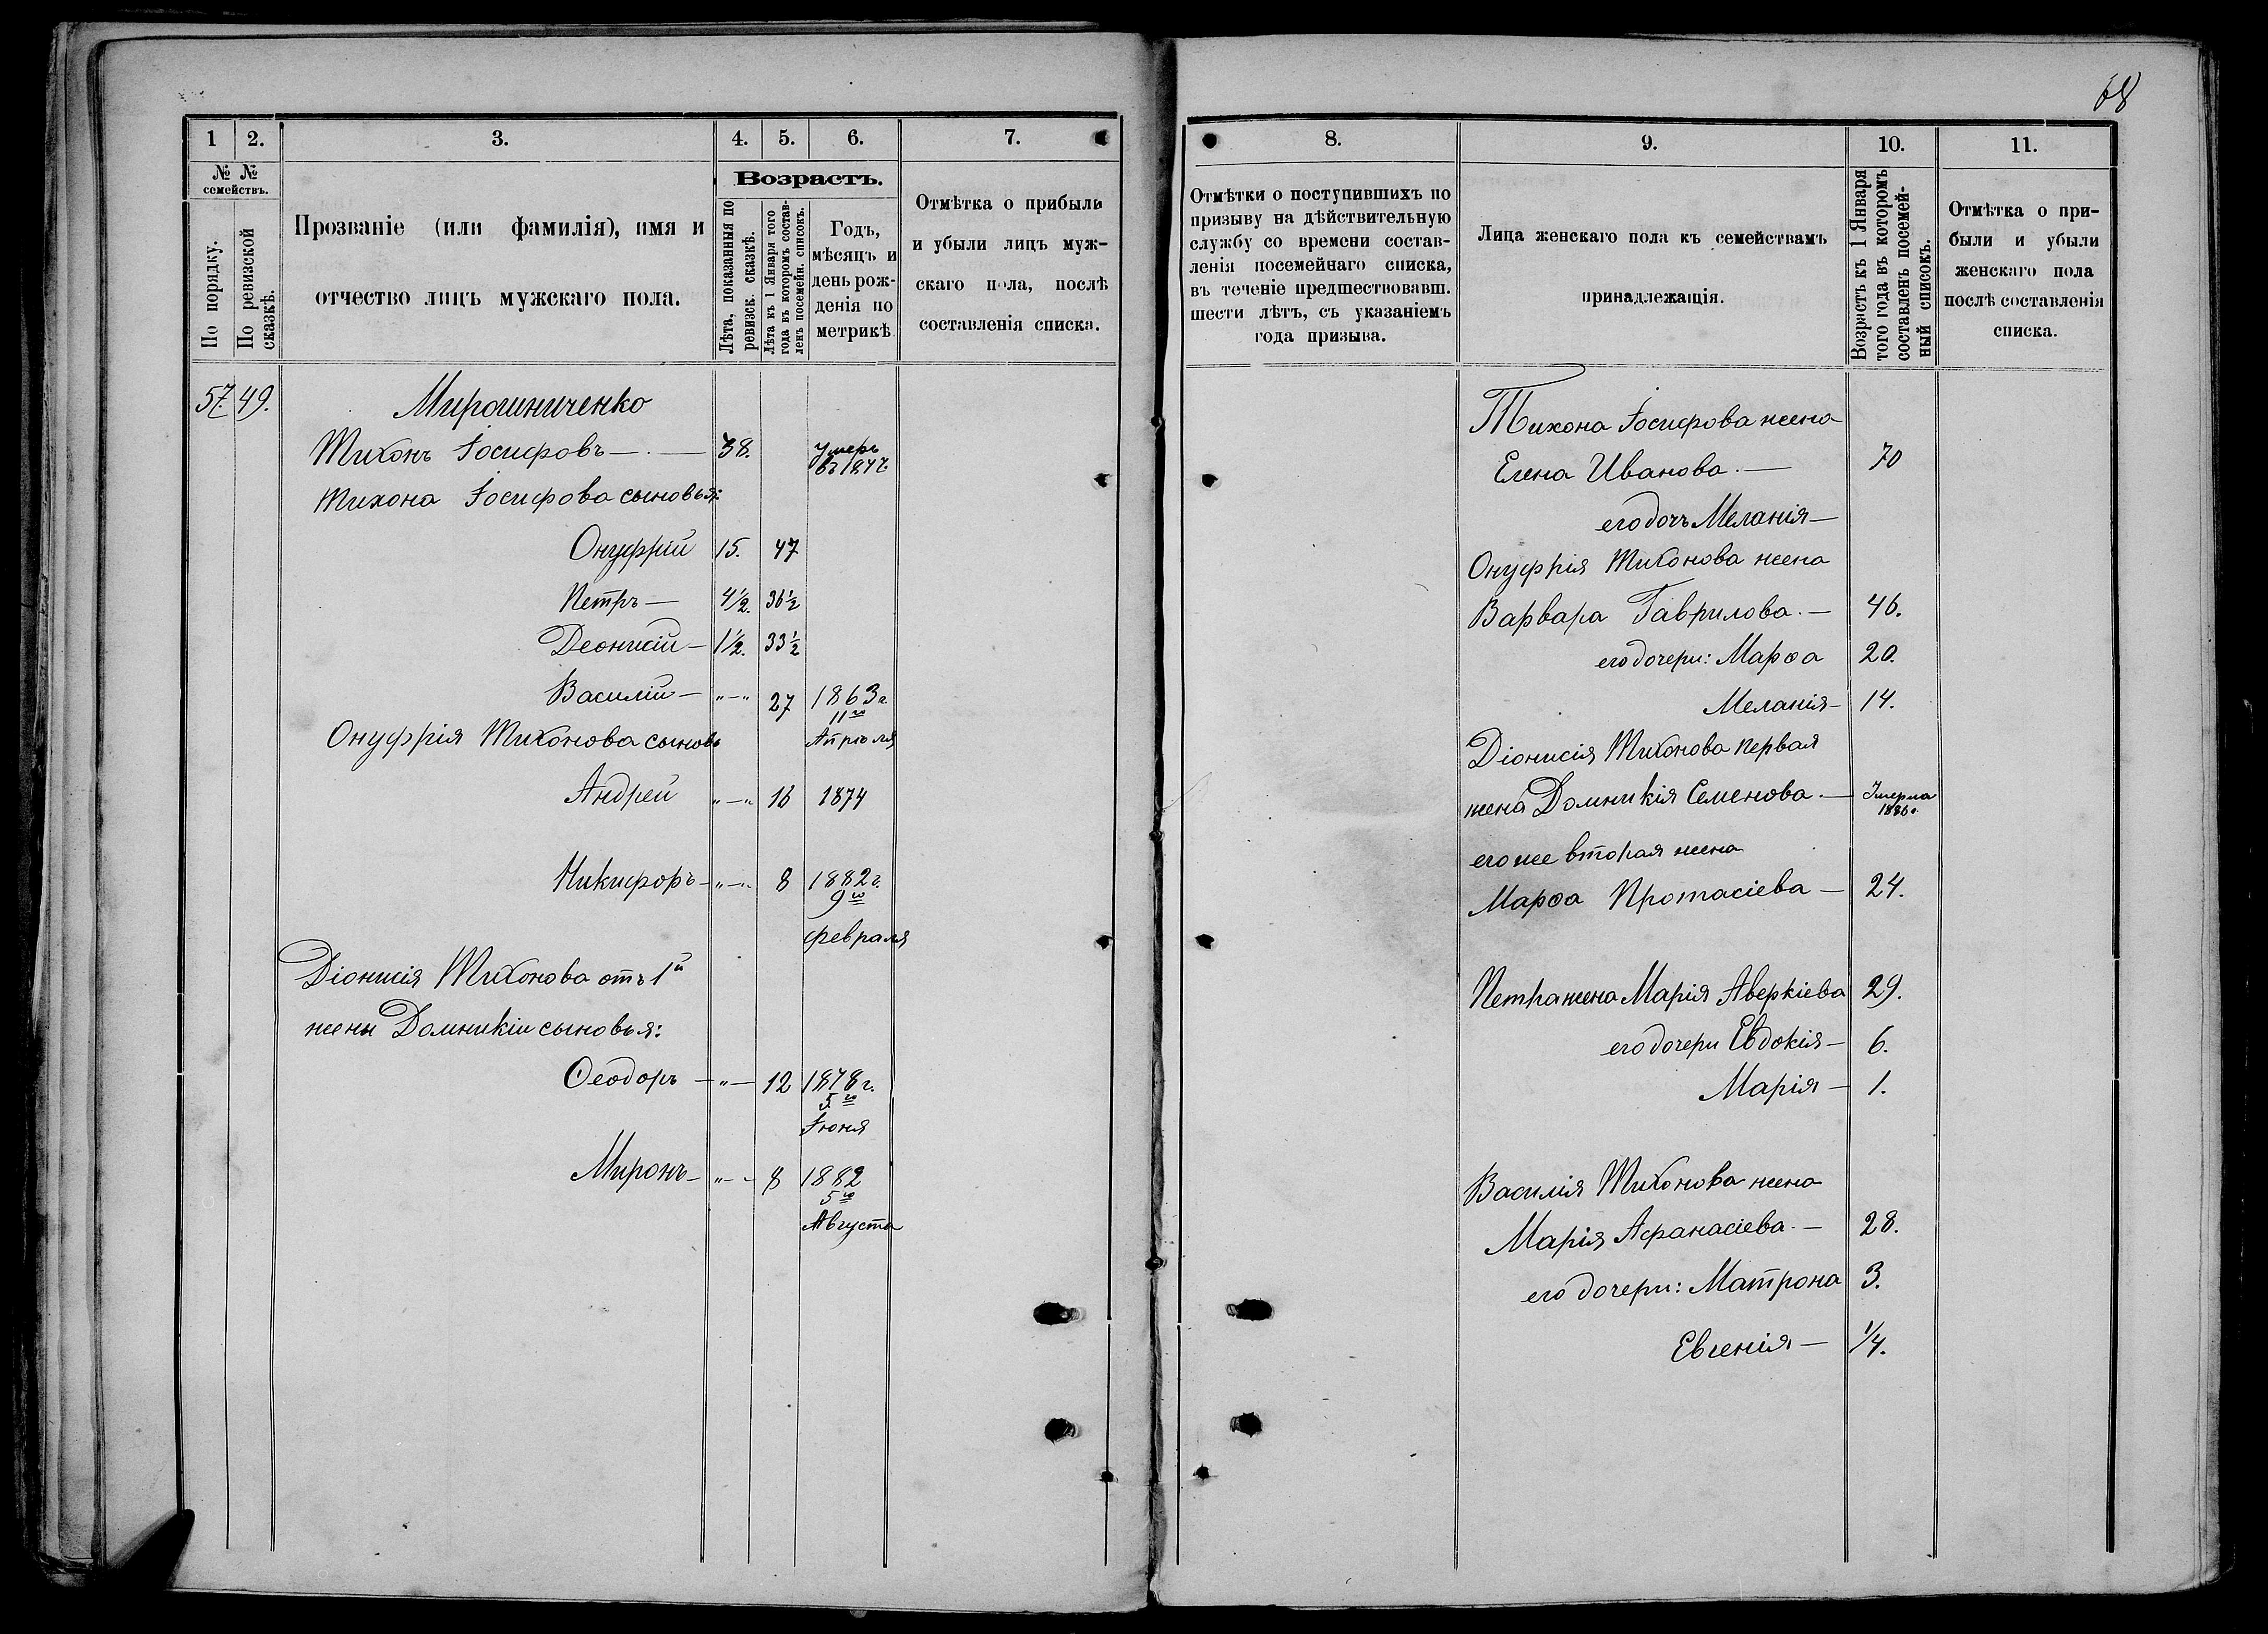 68
1 2. 3. 4. 5. 6. 7.
№ №
семействъ.
По порядку.
По ревизской
сказкѣ.
Прозваніе (или фамилія), имя и
отчество лицъ мужскаго пола.
Возрастъ.
Лѣта, показанныя по
ревизск. сказкѣ.
Лѣта къ 1 Января того
года въ которомъ состав-
ленъ посемейн. списокъ.
Годъ,
мѣсяцъ и
день рож-
денія по
метрикѣ
Отмѣтка о прибыли
и убыли лицъ муж-
скаго пола, послѣ
составленія списка.
57. 49. Мирошниченко
Тихонъ Іосифовъ — 38. умеръ
въ
Тихона Іосифова сыновья:
Онуфрій 15. 47
Петръ — 4½. 36½
Деонисій — 1½. 33½
Василій — „—„ 27 1863 г.
11го
Апрѣля
Онуфрія Тихонова сыновь
Андрей „—„ 16 1874
Никифоръ — „—„ 8 1882 г.
9го
февраля
Діонисія Тихонова отъ 1й
жены Домникіи сыновья:
Ѳеодоръ — „— 12 1878 г.
5го
Іюня
Миронъ — „— 8 1882
5го
Августа
8. 9. 10. 11.
Отмѣтки о поступившихъ по
призыву на дѣйствительную
службу со времени состав-
ленія посемейнаго списка,
въ теченіе предшествовавш.
шести лѣтъ, съ указаніемъ
года призыва.
Лица женскаго пола къ семействамъ
принадлежащія.
Возрастъ къ 1 Января
того года въ которомъ
составленъ посемей-
ный списокъ.
Отмѣтка о при-
были и убыли
женскаго пола
послѣ составленія
списка.
Тихона Іосифова жена
Елена Иванова. — 70
его дочь Меланія —
Онуфрія Тихонова жена
Варвара Гаврилова. — 46.
его дочери: Марѳа 20.
Меланія — 14.
Діонисія Тихонова первая
жена Домникія Семенова. — Умерла
1886 г.
его же вторая жена
Марѳа Протасіева — 24.
Петра жена Марія Аверкіева 29.
его дочери Евдокія — 6.
Марія — 1.
Василія Тихонова жена
Марія Афанасіева. — 28.
его дочери: Матрона 3.
Евгенія — 1/4.